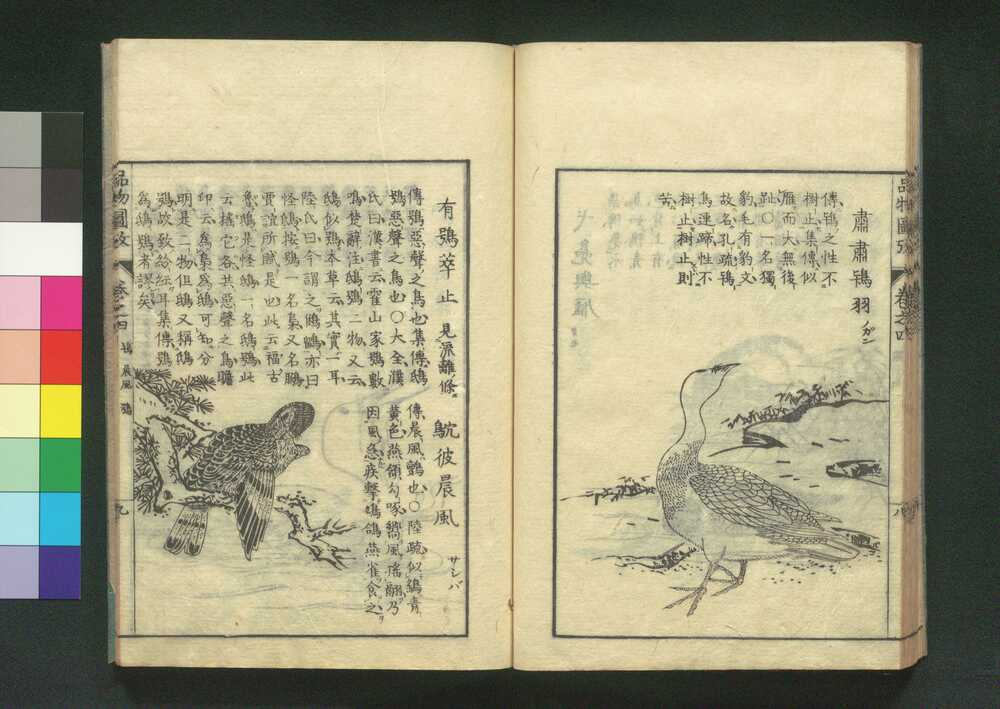 肅肅鴇羽 ノガン
傳鴇之性不
樹止集傳似
雁而大無後
趾〇一名獨
豹毛有豹文
故名孔疏鴇
鳥連蹄性不
樹止樹止則
苦
品物圖攷 卷之四
八
有鴞萃止 見流離條
傳鴞惡聲之鳥也集傳鴟
鴞惡聲之鳥也〇大全濮
氏曰漢書云霍山家鴞數
鳴楚辭注鴟鴞二物又云
鴟似鴞本草云其實一耳
陸氏曰今謂之鵂鶹亦曰
怪鴟按鴞一名梟又名鵩
賈誼所賦是也此云福古
魯鴞是怪鴟一名鴟鴞此
云搖它各共惡聲之鳥瞻
卬云爲梟爲鴟可知分
明是二物但鴟又稱鴟
鴞故致紛紜耳集傳鴞
爲鴟鴞者謬矣
鴥彼晨風 サシバ
傳晨風鸇也〇陸疏似鷂青
黃色燕頷勾喙嚮風搖翮乃
因風急疾擊鳩鴿燕雀食之
品物圖攷 卷之四 鴇 晨風 鴞
九